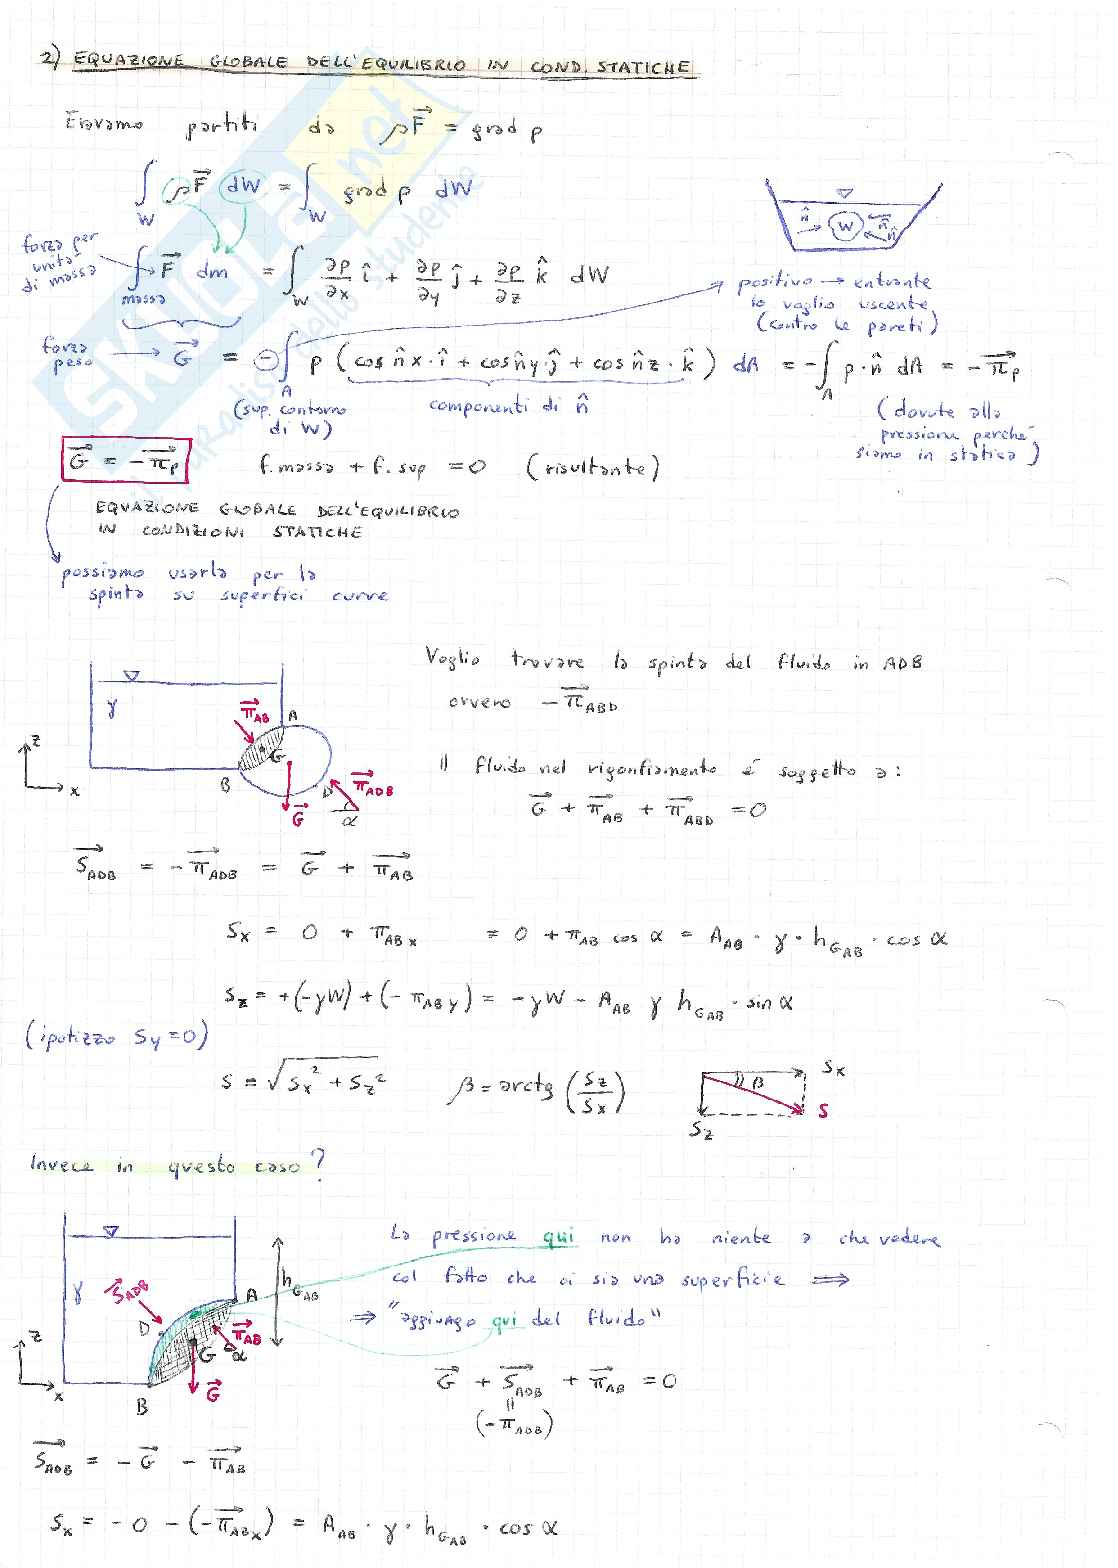 2) EQUAZIONE GLOBALE DELL'EQUILIBRIO IN COND. STATICHE
Eravamo partiti da ρF⃗ = grad p
∫_W ρF⃗ dW = ∫_W grad p dW
forza per unità di massa
∫_massa F⃗ dm = ∫_W ∂p/∂x î + ∂p/∂y ĵ + ∂p/∂z k̂ dW
n̂ W n̂ n̂
positivo → entrante
lo voglio uscente
(contro le pareti)
forza peso → G⃗ = -∫_A p (cos n̂x · î + cos n̂y · ĵ + cos n̂z · k̂) dA = -∫_A p · n̂ dA = -π⃗_p
(sup. contorno di W)
componenti di n̂
(dovute alla pressione perché siamo in statica)
G⃗ = -π⃗_p
f. massa + f. sup = 0 (risultante)
EQUAZIONE GLOBALE DELL'EQUILIBRIO
IN CONDIZIONI STATICHE
possiamo usarla per la
spinta su superfici curve
Voglio trovare la spinta del fluido in ADB
ovvero -π⃗_ABD
γ π⃗_AB A G B D π⃗_ADB G⃗ α z x
Il fluido nel rigonfiamento é soggetto a:
G⃗ + π⃗_AB + π⃗_ABD = 0
S⃗_ADB = -π⃗_ADB = G⃗ + π⃗_AB
S_x = 0 + π_ABx = 0 + π_AB cos α = A_AB · γ · h_GAB · cos α
S_z = +(-γW) + (-π_ABy) = -γW - A_AB γ h_GAB · sin α
(ipotizzo Sy = 0)
S = √(S_x² + S_z²) β = arctg (S_z/S_x)
S_x β S S_z
Invece in questo caso?
La pressione qui non ha niente a che vedere
col fatto che ci sia una superficie ⟹
⟹ "aggiungo qui del fluido"
γ S⃗_ADB A h_GAB D π⃗_AB G α G⃗ B z x
G⃗ + S⃗_ADB + π⃗_AB = 0
(-π⃗_ADB)
S⃗_ADB = -G⃗ - π⃗_AB
S_x = -0 - (-π⃗_ABx) = A_AB · γ · h_GAB · cos α